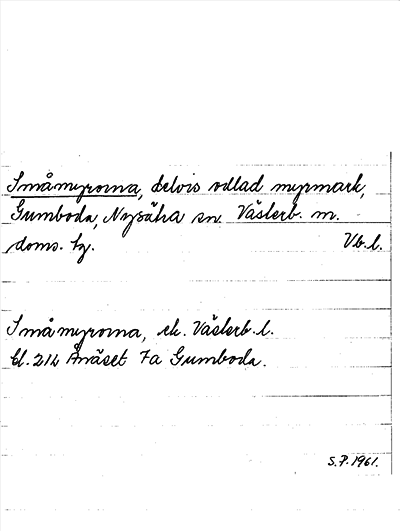 Småmyrorna, delvis odlad myrmark,
Gumboda, Nysätra sn. Västerb. m.
doms. hj. Vb. l.
Småmyrorna, ek. Västerb. l.
bl. 214 Ånäset 7a Gumboda.
S.P. 1961.